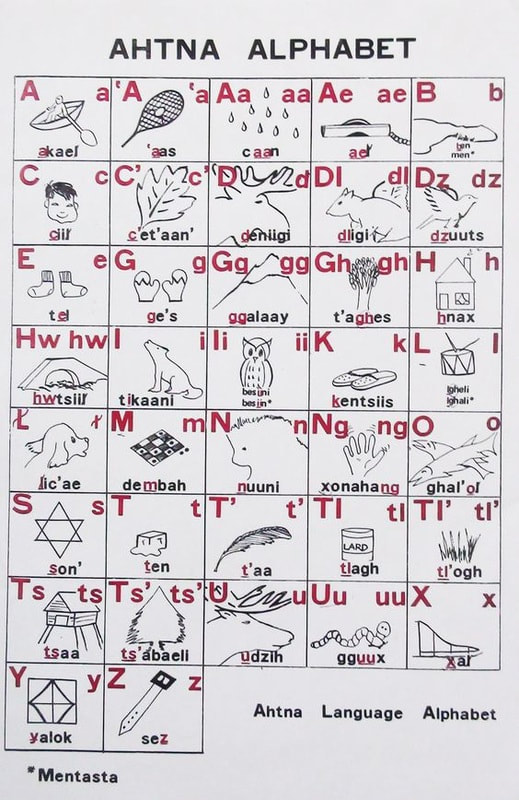 AHTNA ALPHABET
A a ʽA ʽa Aa aa Ae ae B b
akaeł ʽaas caan aeł ben
men*
C c C' c' D d Dl dl Dz dz
ciił c'et'aan' deniigi dligi dzuuts
E e G g Gg gg Gh gh H h
tel ge's ggalaay t'aghes hnax
Hw hw I i Ii ii K k L l
hwtsiił tikaani besiini kentsiis lgheli
besiin* lghali*
Ł ł M m N n Ng ng O o
łic'ae dembah nuuni xonahang ghal'oł
S s T t T' t' Tl tl Tl' tl'
son' ten t'aa LARD tlagh tl'ogh
Ts ts Ts' ts' U u Uu uu X x
tsaa ts'abaeli udzih gguux xał
Y y Z z
yalok sez
Ahtna Language Alphabet
*Mentasta